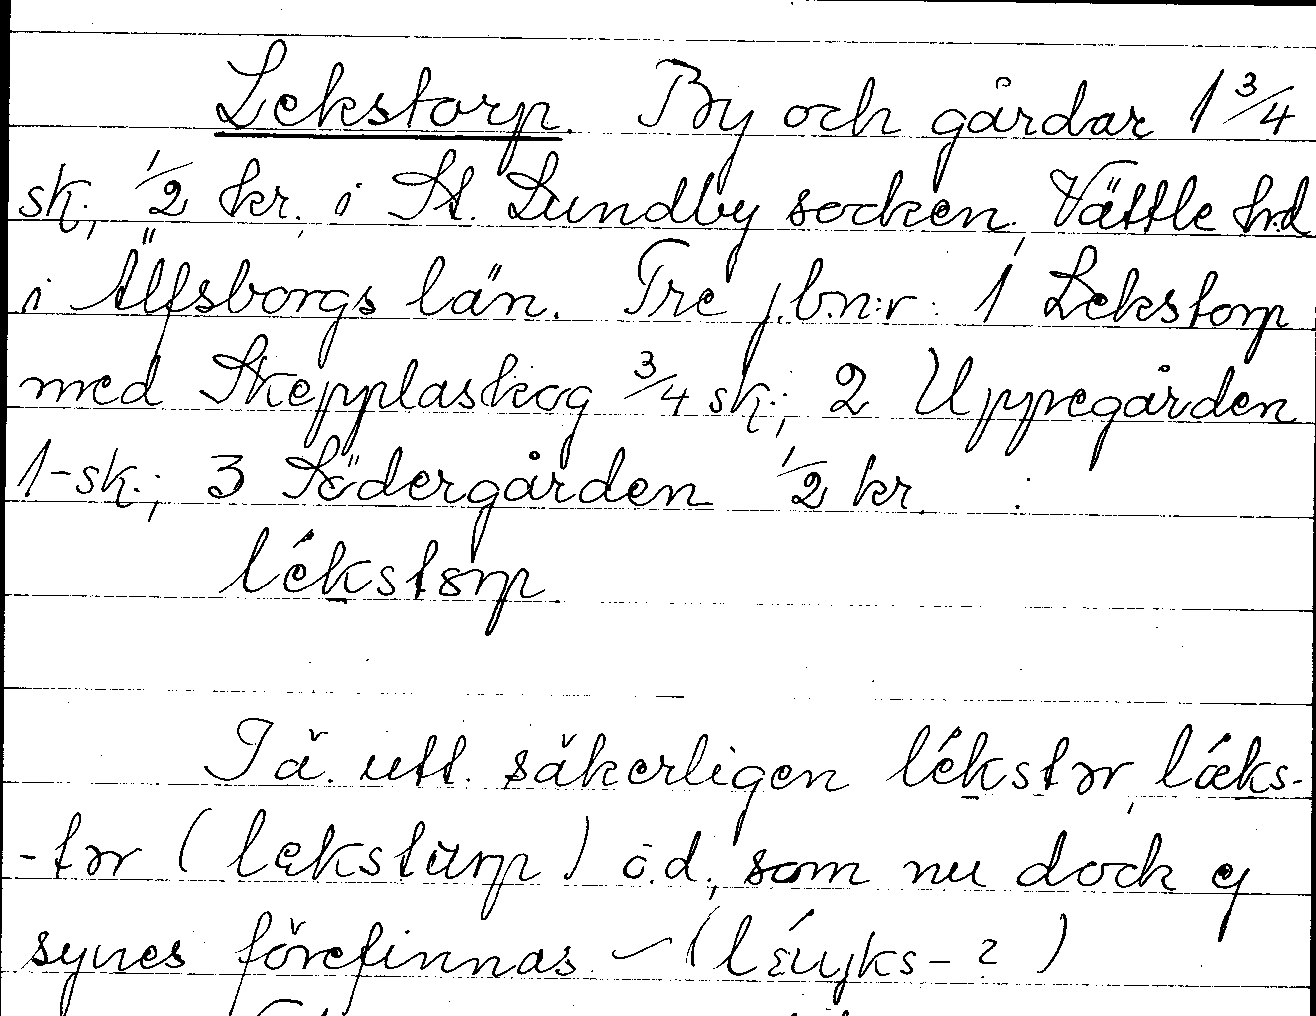 Lekstorp. By och gårdar 1 3/4
sk; 1/2 kr. i St. Lundby socken, Vättle hd
i Älfsborgs län. Tre j.b.n:r: 1 Lekstorp
med Skepplaskog 3/4 sk.; 2 Uppegården
1-sk.; 3 Södergården 1/2 kr.
lékstorp
Fä. utt. säkerligen lékstər, lǽks-
-tər (læksturp) o.d., som nu dock ej
synes förefinnas – ( ? )